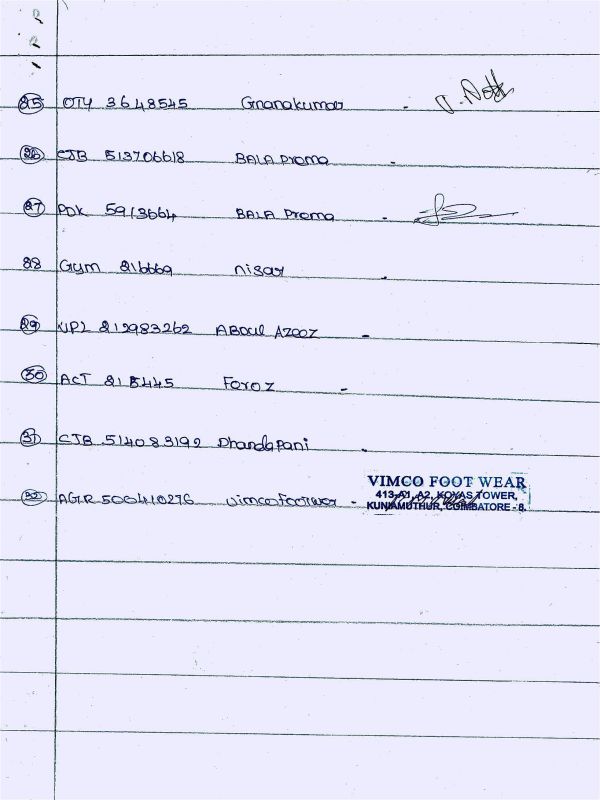 25 OTY 3648545 Gnanakumar -
26 CJB 513706618 BALA Prema -
27 PDK 5913664 BALA Prema -
28 Gym 216669 nisar -
29 UPL 212983262 ABDUL AZEEZ -
30 ACT 215445 Feroz -
31 CJB 514083192 Dhandapani -
32 AGR 500410276 Vimco Footwer -
VIMCO FOOT WEAR
413-A1, A2, KOYAS TOWER,
KUNIAMUTHUR, COIMBATORE - 8.